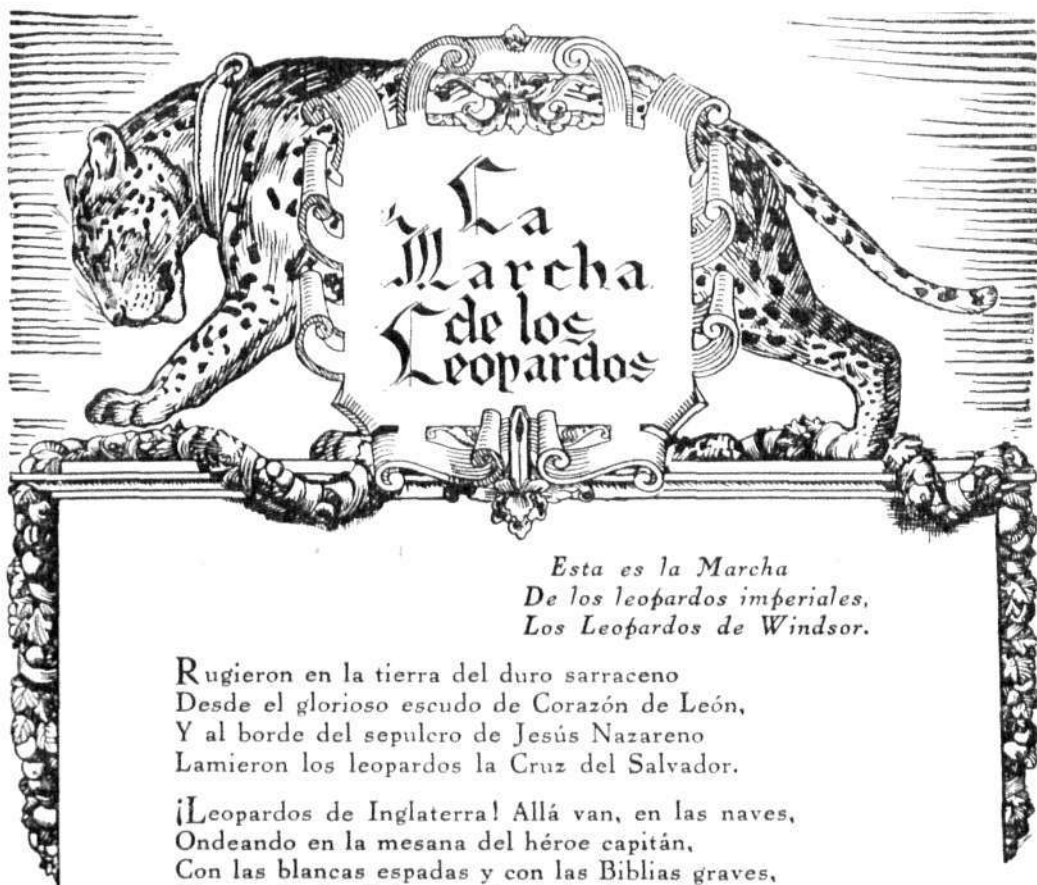 La
Marcha
de los
Leopardos
Esta es la Marcha
De los leopardos imperiales,
Los Leopardos de Windsor.
Rugieron en la tierra del duro sarraceno
Desde el glorioso escudo de Corazón de León,
Y al borde del sepulcro de Jesús Nazareno
Lamieron los leopardos la Cruz del Salvador.
¡Leopardos de Inglaterra! Allá van, en las naves,
Ondeando en la mesana del héroe capitán,
Con las blancas espadas y con las Biblias graves,